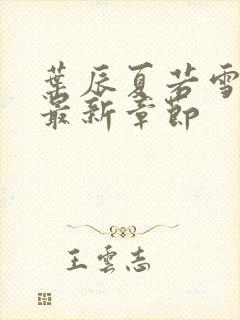 葉辰夏若雪
最新章節
王雲志